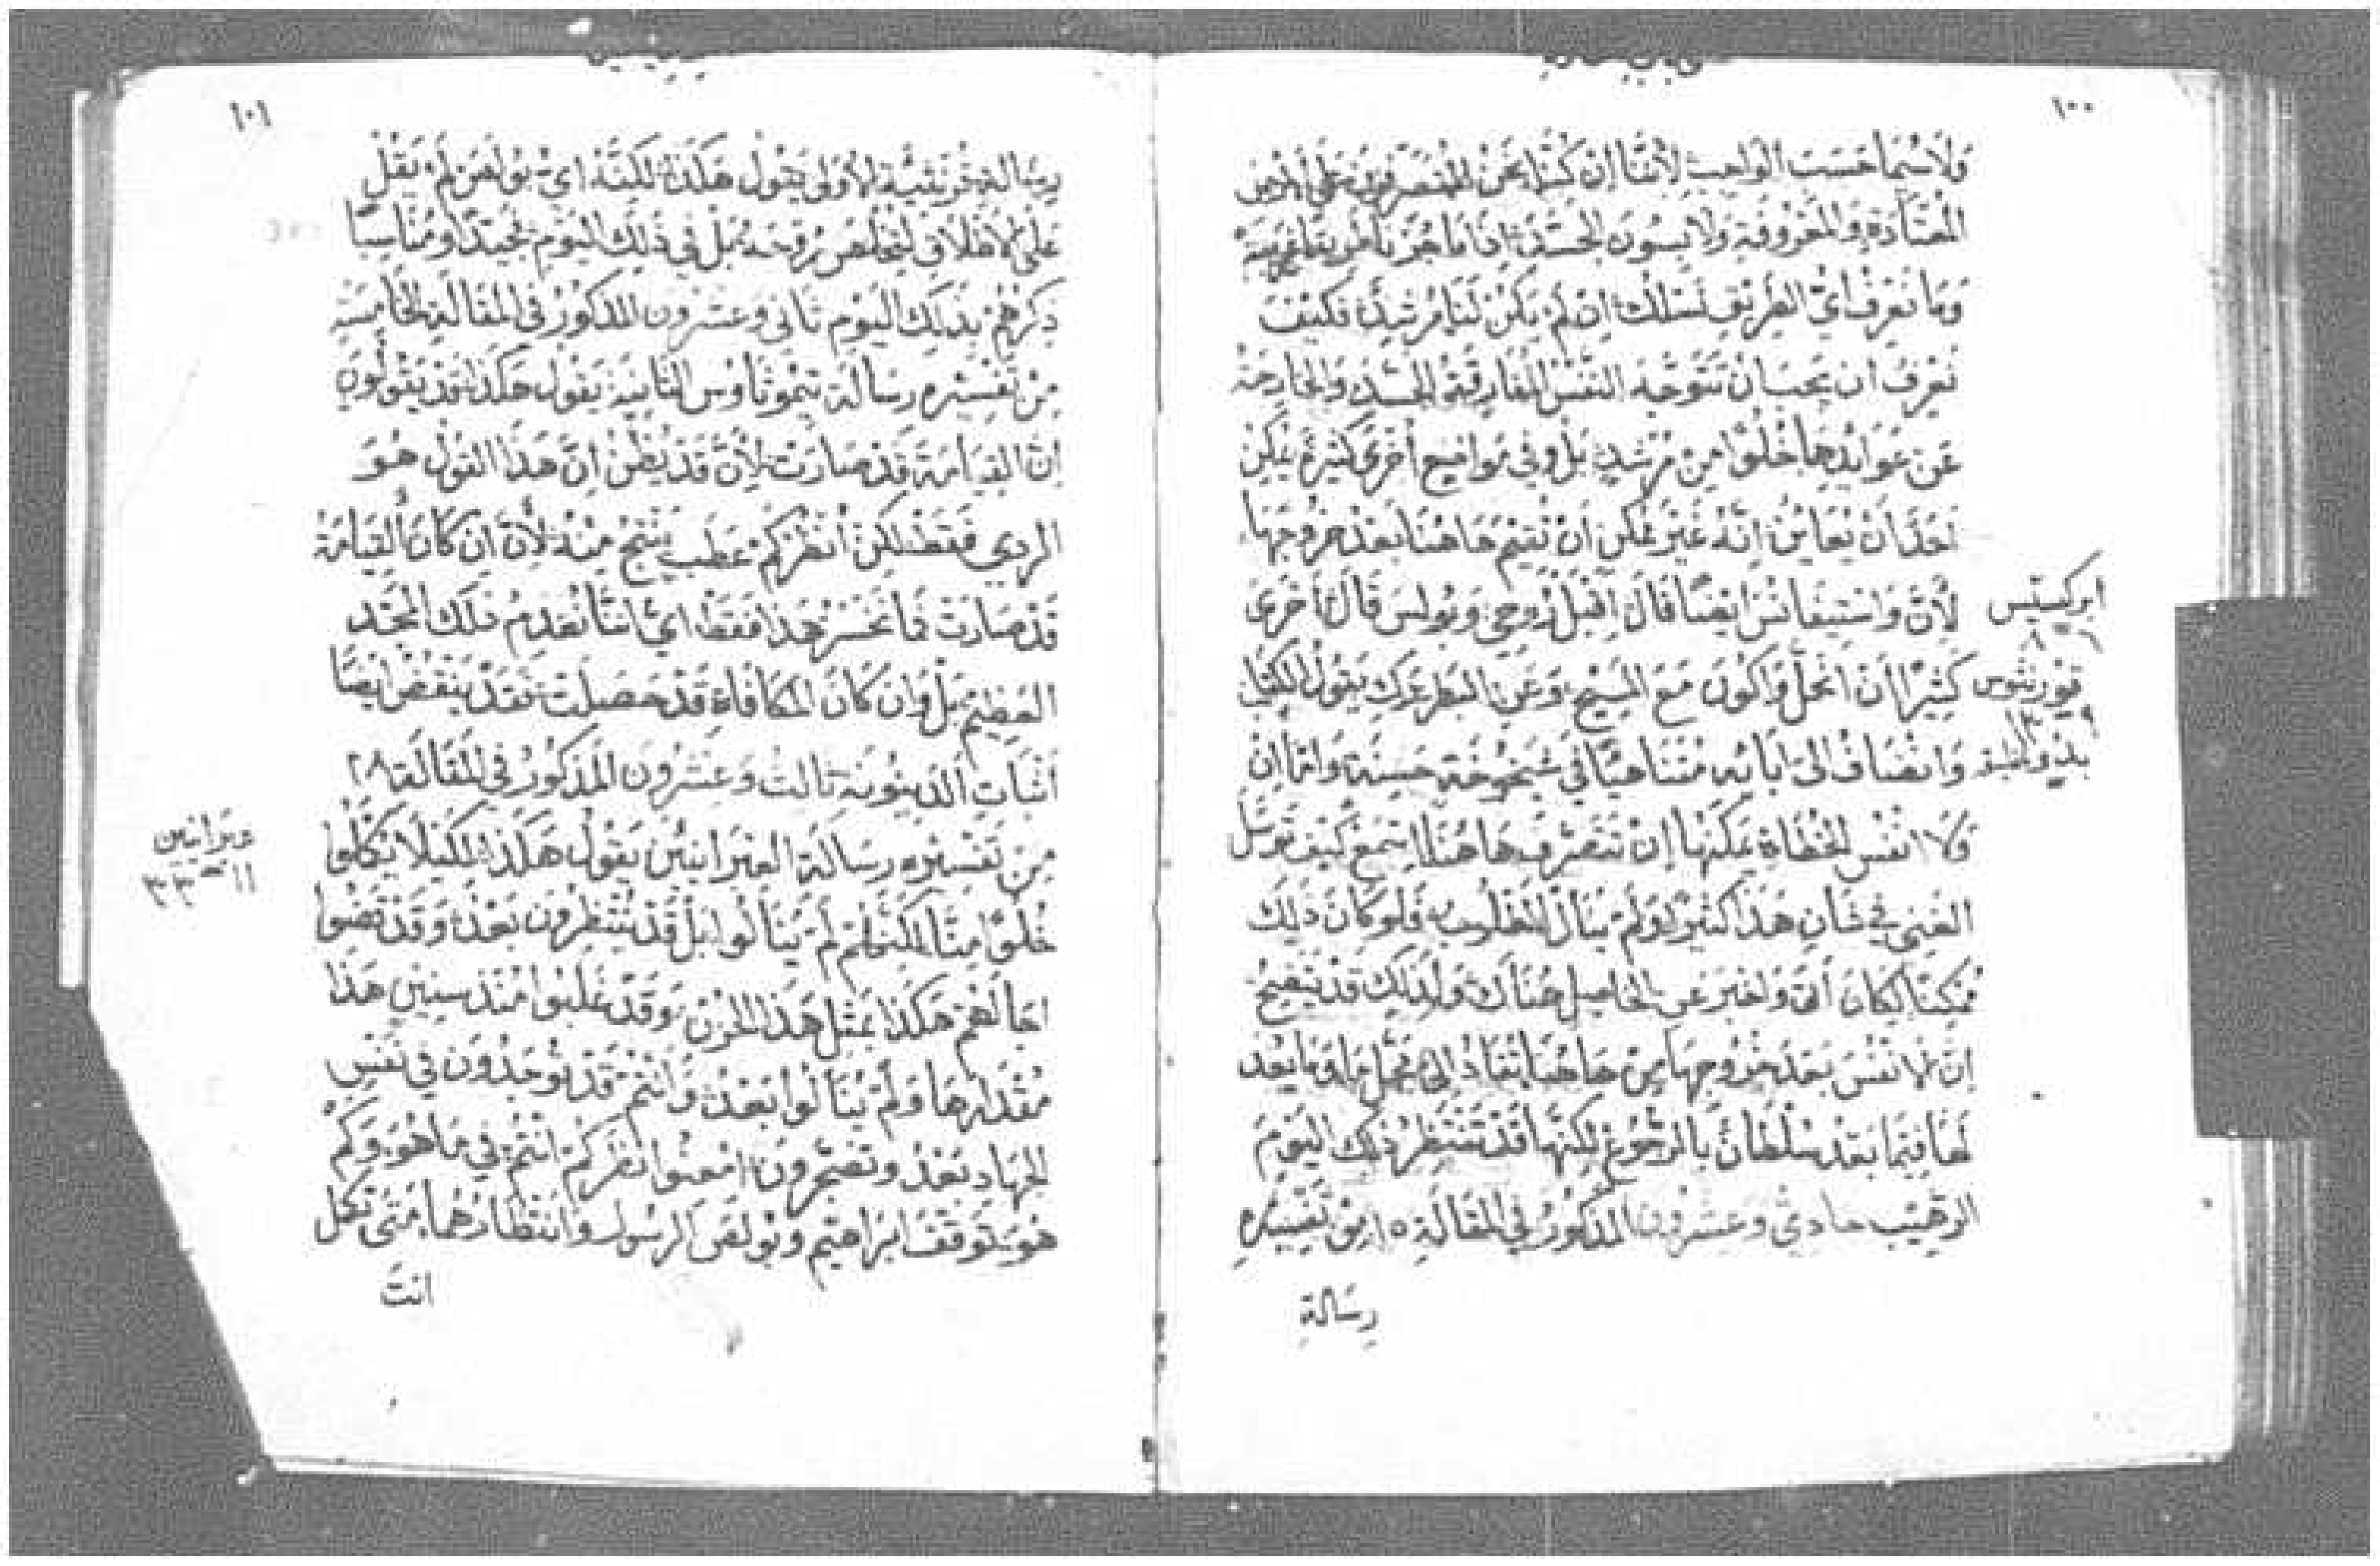 ١٠٠
ولاسيما حسب الواجب لأننا إن كنا نحن المتصرفين على الأرض
المعتادة والمعروفة ولابسون الجسد إذا ما جزنا طريقا غريبة
وما نعرف أي الطريق نسلك إن لم يكن لنا مرشدا فكيف
نعرف أن يجب أن تتوجه النفس المفارقة الجسد والخارجة
عن عوايدها خلوا من مرشد بل وفي مواضع أخرى كثيرة يمكن
أحد أن يعاين أنه غير ممكن أن تقيم هاهنا بعد خروجها
لأن واستيفانس ايضا قال إقبل روحي وبولس قال أحرى
كثيرا أن انحل واكون مع المسيح وعن البطريرك يقول الكتاب
وانضاف الى ابائه متناحيا في شيخوخة حسنة واما إن
ولا انفس الخطاة يمكنها إن تتصرف هاهنا استمع كيف توسل
الغني في شان هذا كثيرا ولم ينال المطلوب فلو كان ذلك
ممكنا لكان أتى واخبر عن الحاصل هناك ولذلك قد يتضح
ان الانفس بعد خروجها من هاهنا تقاد إلى محل ما وما يعد
لها فيما بعد سلطان بالرجوع لكنها قد تنتظر ذلك اليوم
الرهيب حادي وعشرون المذكور في المقالة ١٥ من تفسيره
رسالة
ابركسيس
قورنثوس
١٠١
رسالة قرنثية الأولى يقول هكذا لكنه اي بولص لم يقل
على الاطلاق لتخلص روحه بل في ذلك اليوم فجيدا ومناسبا
ذكرهم بذلك اليوم ثاني وعشرون المذكور في المقالة الخامسة
من تفسيره رسالة تيموثاوس الثانية يقول هكذا قد يقولون
ان القيامة قد صارت لأن قد يظن ان هذا القول هو
الردي فقط لكن أنظركم عطب ينتج منه لأن ان كان القيامة
قد صارت فما نخسر بهذا فقط اي اننا نعدم ذلك المجد
العظيم بل وان كان المكافاة قد حصلت فقد ينقض ايضا
اثبات الدينونة ثالث وعشرون المذكور في المقالة ٢٨
من تفسيره رسالة العبرانيين يقول هكذا لكيلا يكلوا
خلوا منا لم ينالوا بل قد ينتظرون بعد وقد تضوا
احالهم هكذا بمثل هذا الحزن وقد غلبوا منذ سنين هذا
مقدارها ولم ينالوا بعد وانتم قد توجدون في نفس
الجهاد بعد وتضجرون امعنوا نظركم انتم في ما هو وكم
هو توقف ابراهيم وبولص الرسول وانتظارهما متى تكل
انت
عبرانيين